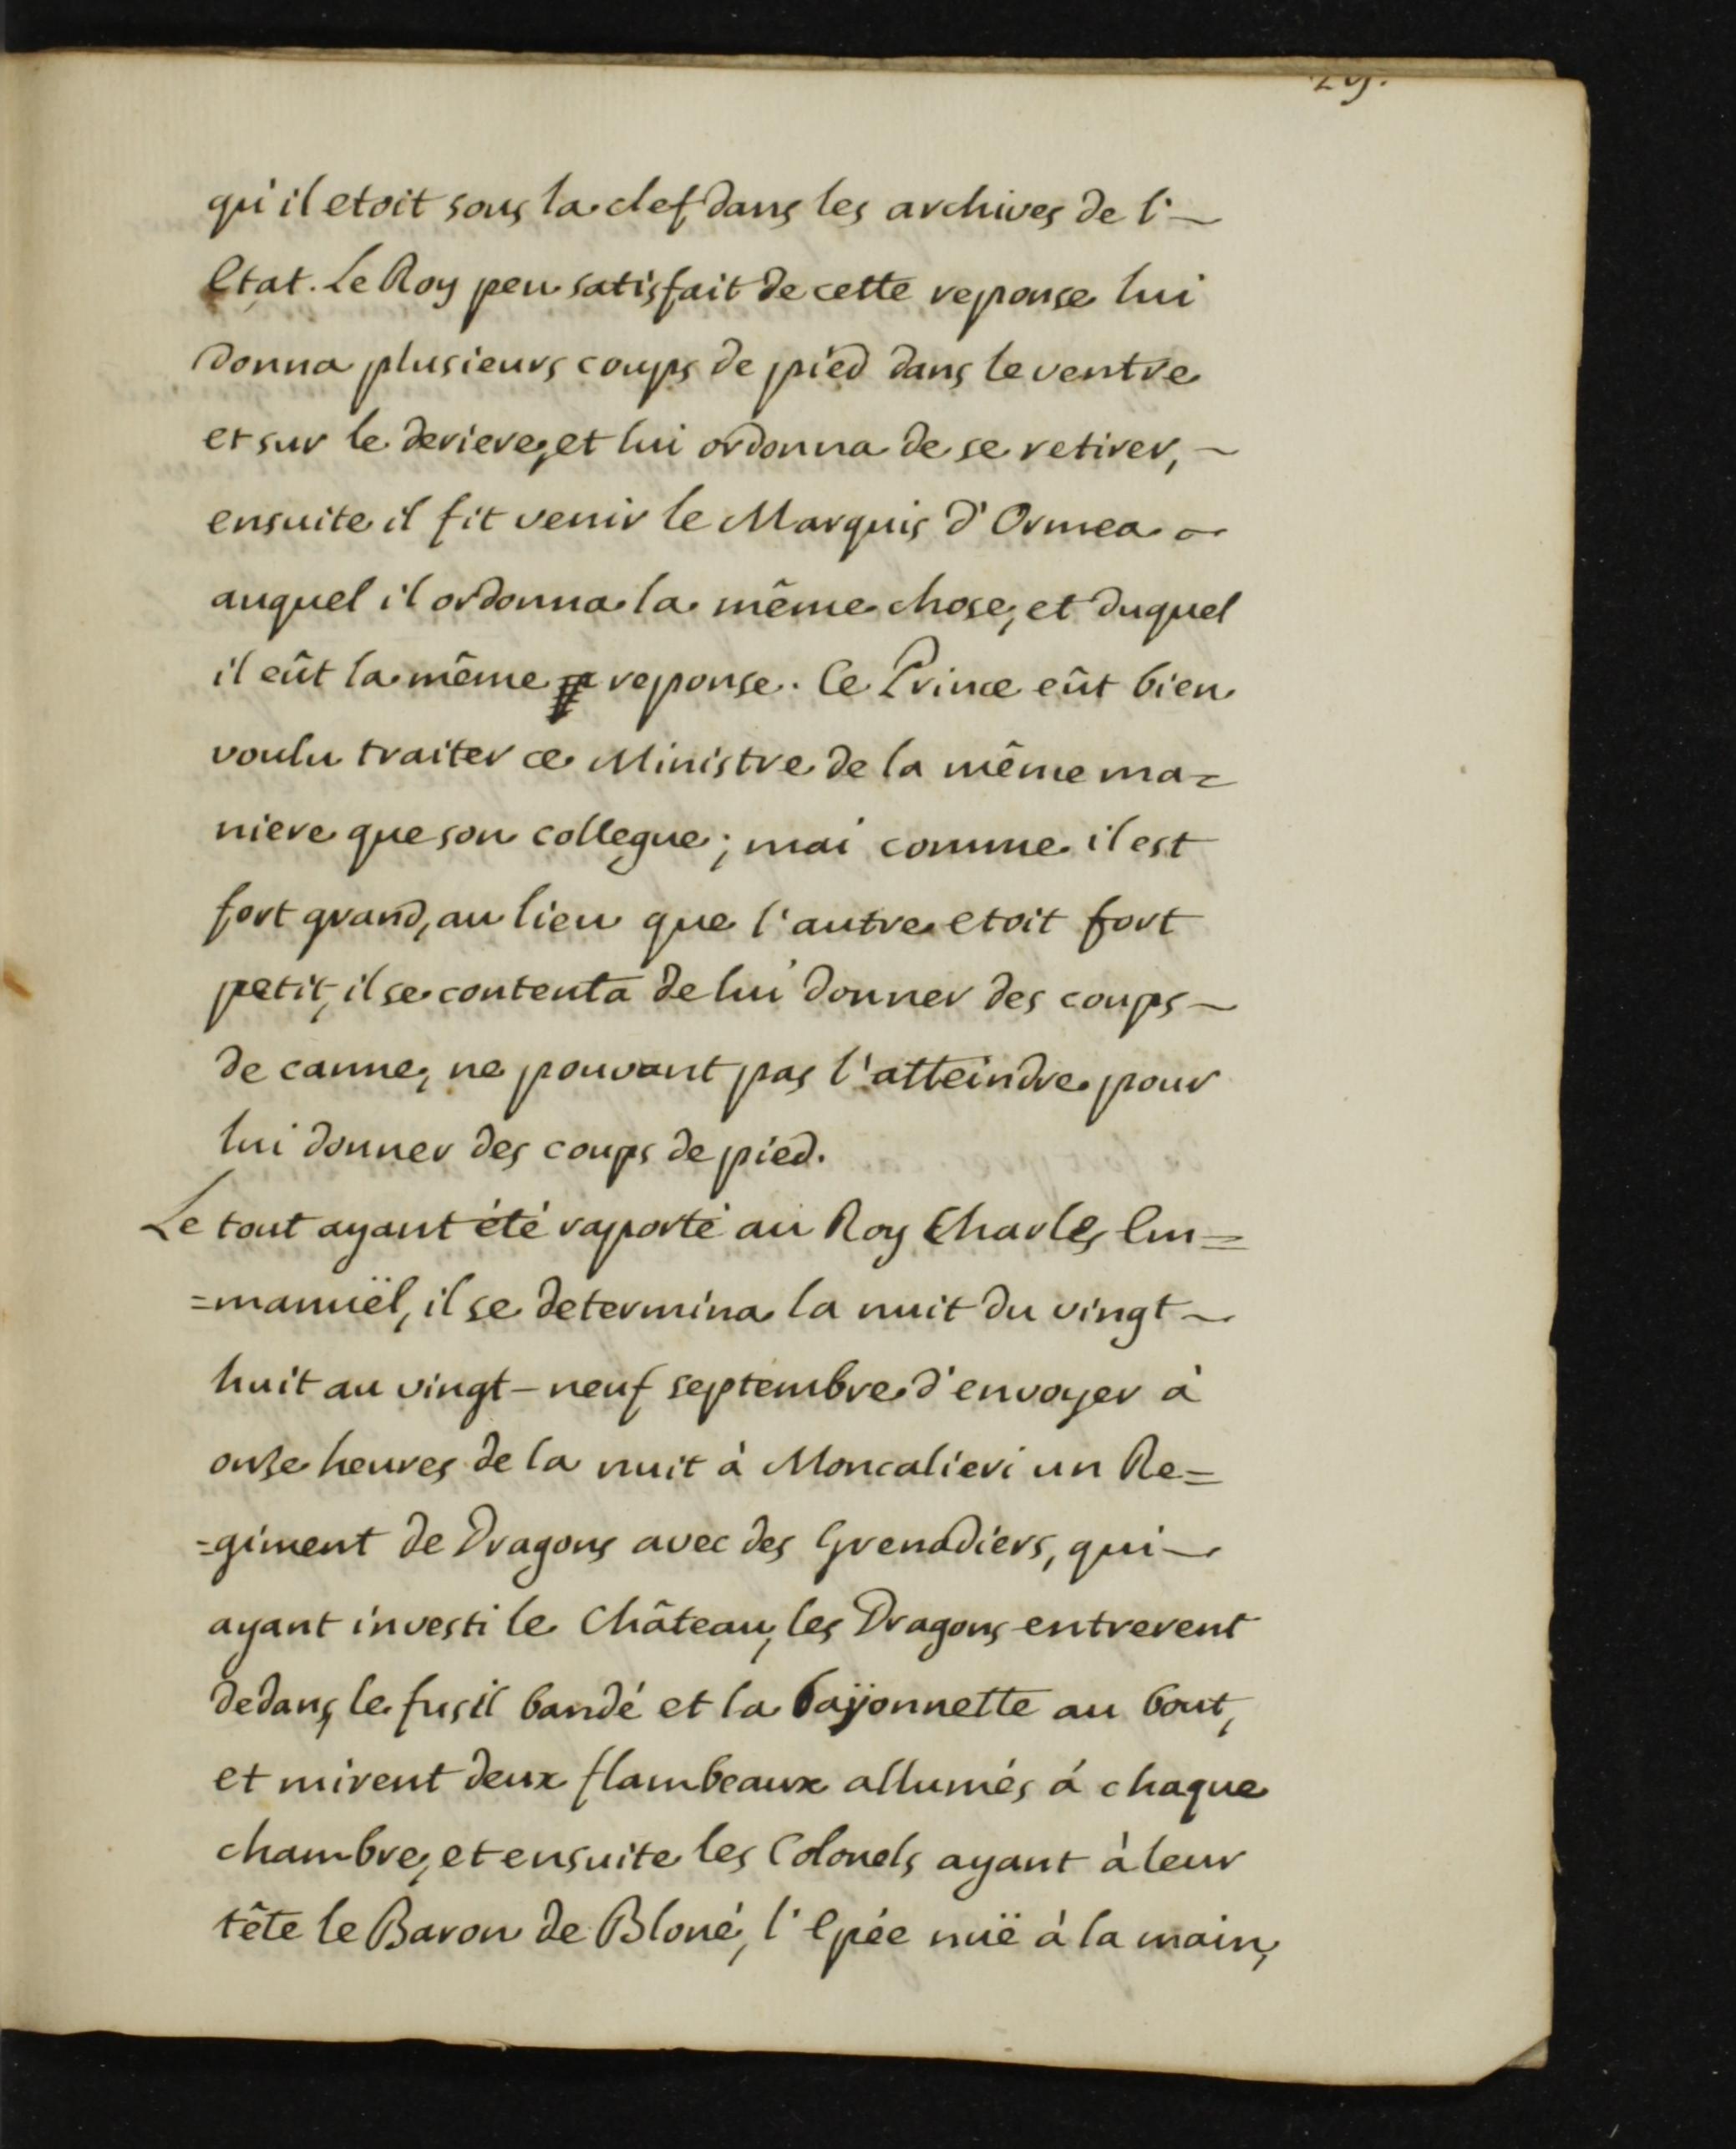 qu'il etoit sous la clef dans les archives de l'
Etat. Le Roy peu satisfait de cette reponse lui
donna plusieurs coups de pied dans le ventre
et sur le deriere, et lui ordonna de se retirer,
ensuite il fit venir le Marquis d'Ormea
auquel il ordonna la même chose, et duquel
il eût la même reponse. Ce Prince eût bien
voulu traiter ce Ministre de la même ma=
niere que son collegue; mai comme il est
fort grand, au lieu que l'autre etoit fort
petit, il se contenta de lui donner des coups
de canne, ne pouvant pas l'atteindre pour
lui donner des coups de pied.
Le tout ayant été raporté au Roy Charles Em=
=manuël, il se determina la nuit du vingt
huit au vingt-neuf septembre d'envoyer à
onze heures de la nuit à Moncalieri un Re=
=giment de Dragons avec des Grenadiers, qui
ayant investi le Château, les Dragons entrerent
dedans, le fusil bandé et la baÿonnette au bout,
et mirent deux flambeaux allumés á chaque
chambre, et ensuite les Colonels ayant à leur
tête le Baron de Bloné, l'Epée nuë à la main,